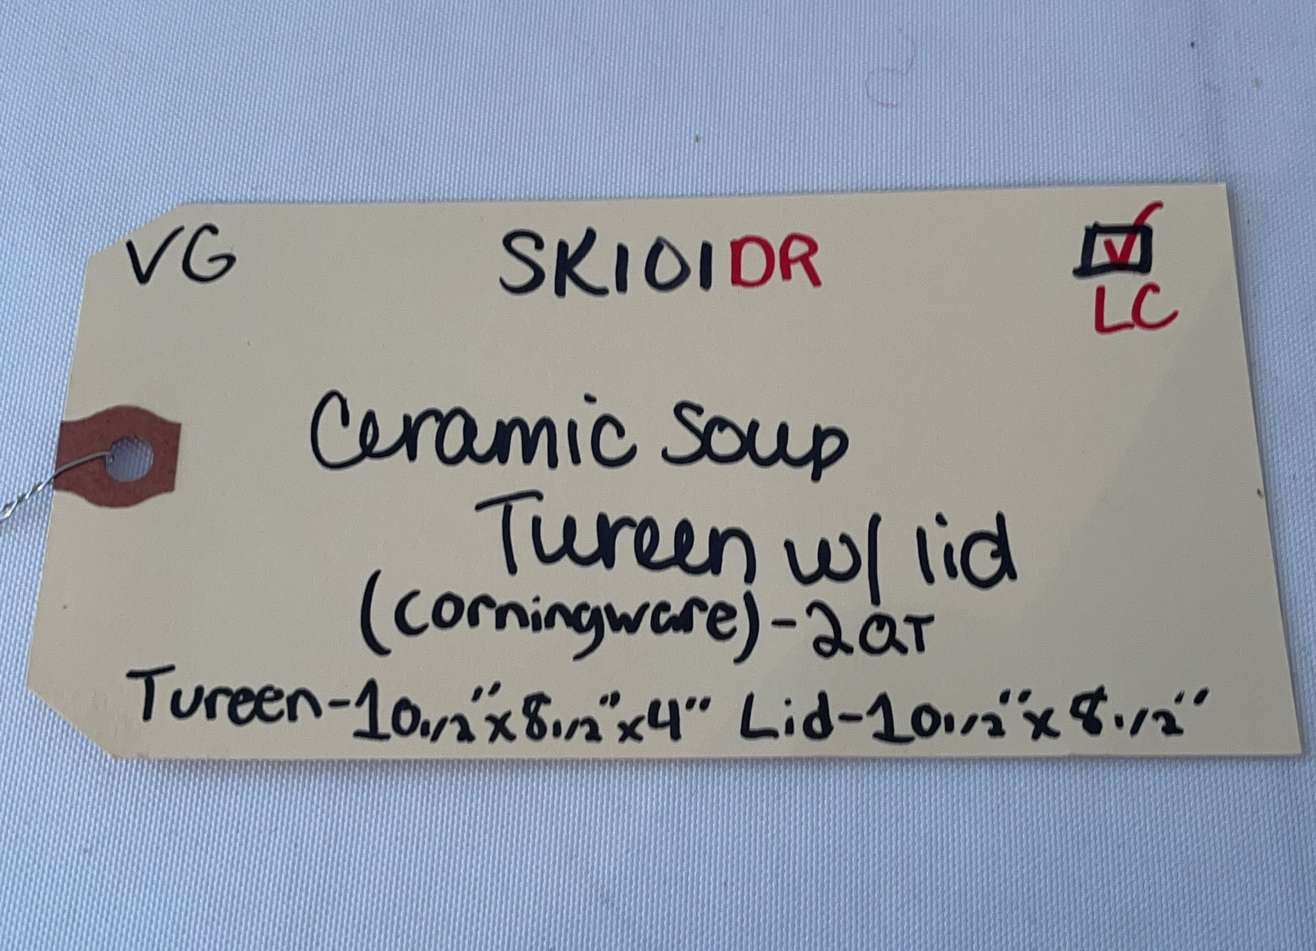 VG SK101DR
LC
Ceramic Soup
Tureen w/ lid
(corningware)-2QT
Tureen-10 1/2"x8 1/2"x4" Lid-10 1/2"x8 1/2"